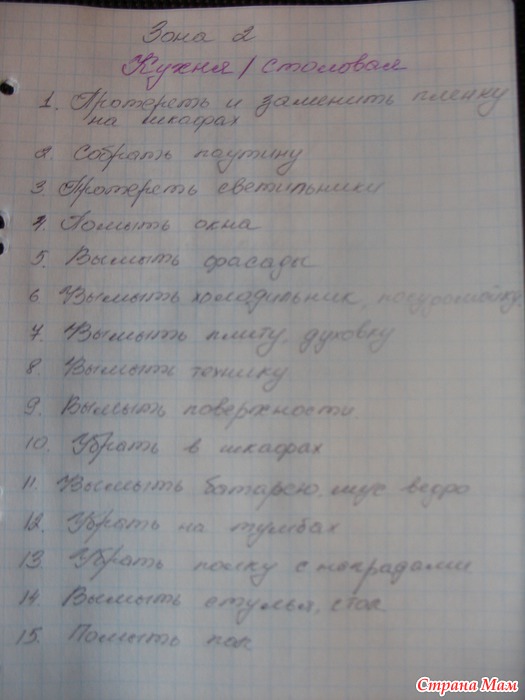 Зона 2
Кухня / столовая
1. Протереть и заменить пленку
на шкафах
2. Собрать паутину
3 Протереть светильники
4. Помыть окна
5 Вымыть фасады
6 Вымыть холодильник, посудомойку,
7 Вымыть плиту, духовку
8. Вымыть технику
9. Вымыть поверхности
10. Убрать в шкафах
11. Вымыть батарею, мус ведро
12. Убрать на тумбах
13 Убрать полку с наградами
14 Вымыть стулья, стол
15. Помыть пол
Страна Мам